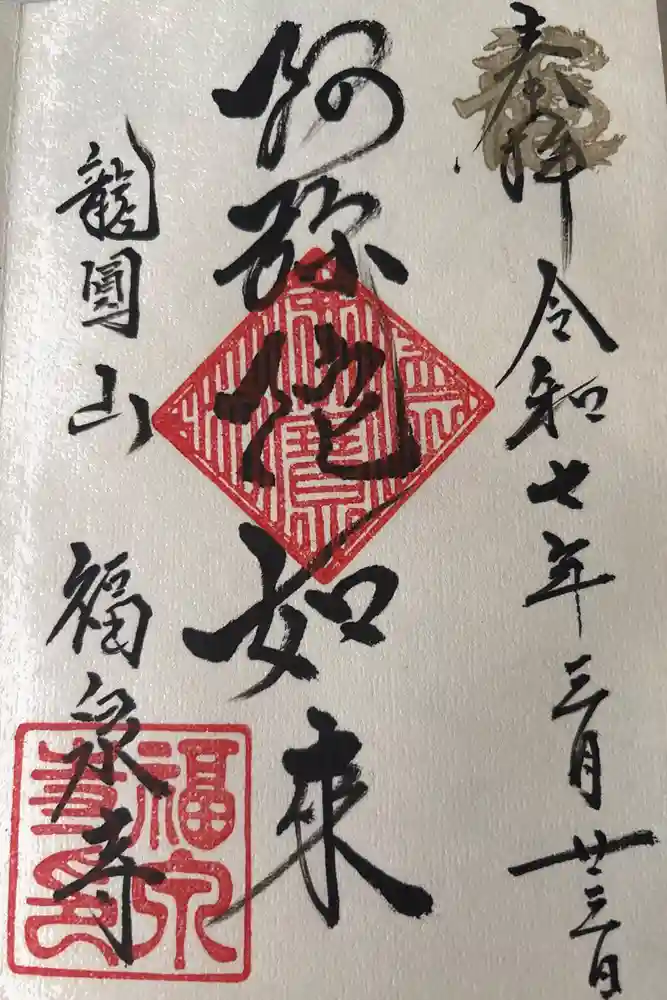 奉拝
令和七年三月廿三日
阿弥陀如来
龍圓山
福泉寺